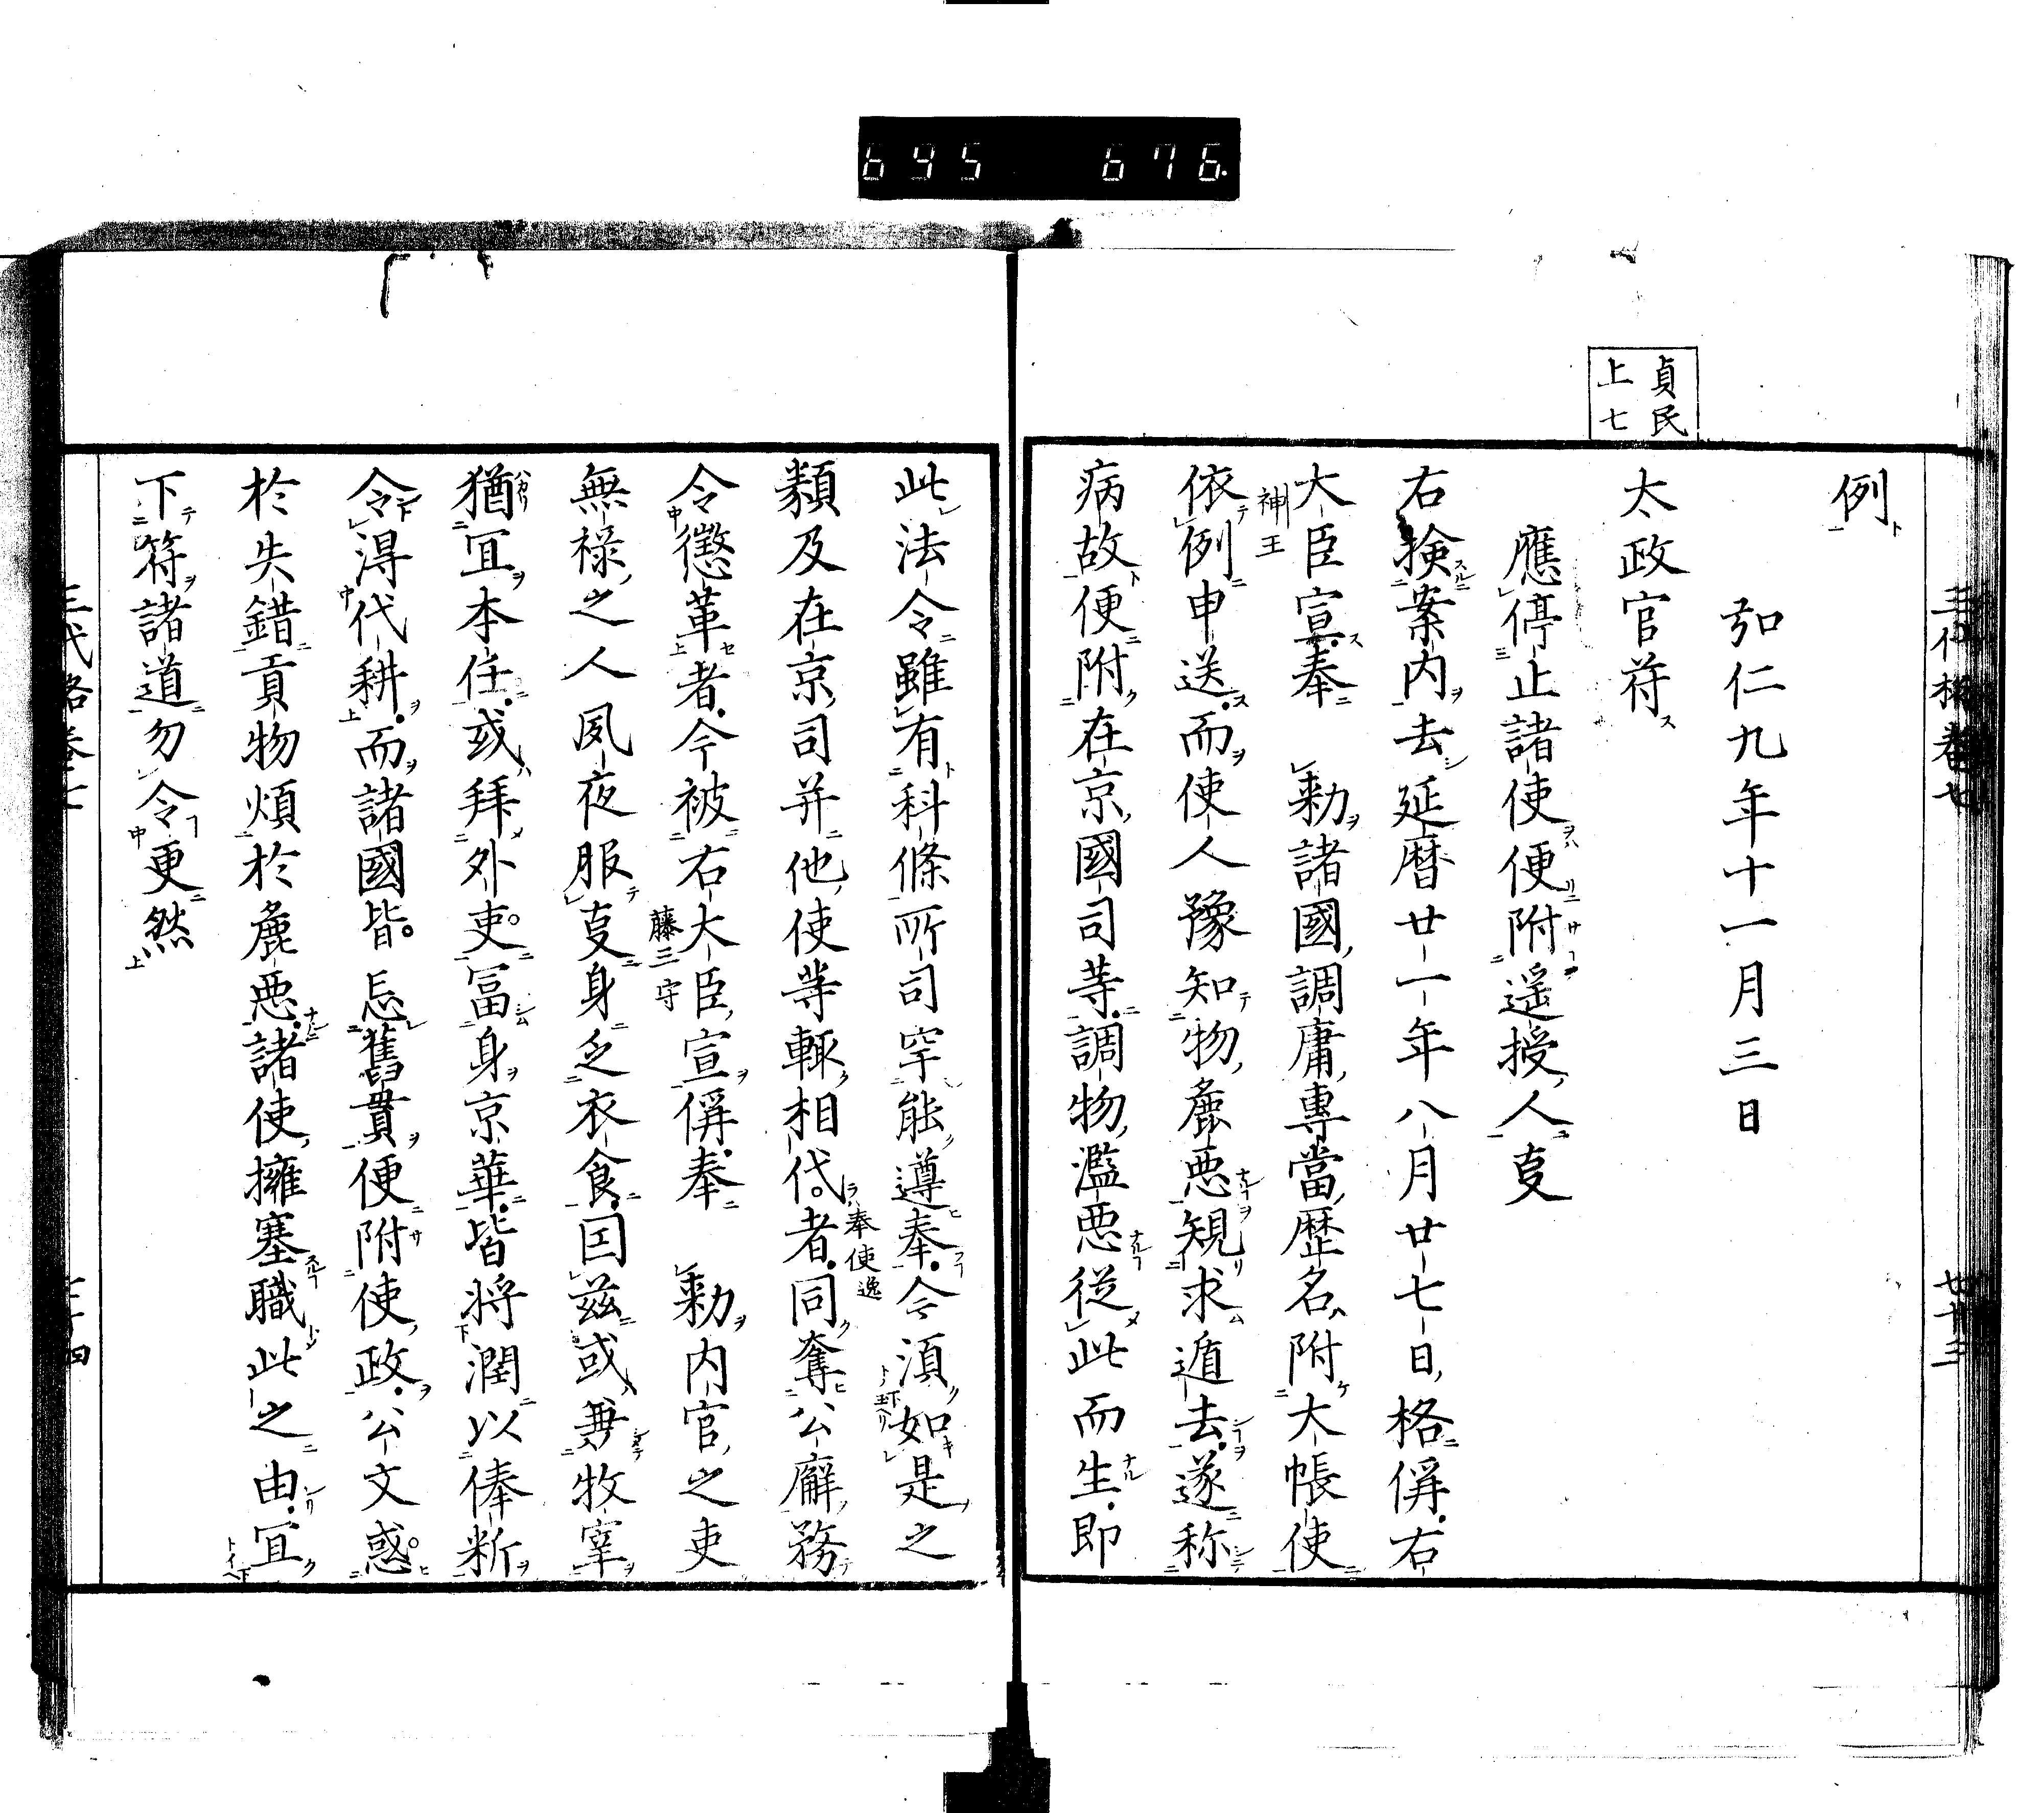 695 676
三代格卷七
廿十三
貞民
上七
例
弘仁九年十一月三日
太政官符
應停止諸使便附遥授人叓
右挨案内去延暦廿一年八月廿七日格偁右
大臣宣奉 勅諸國調庸專當歴名附大帳使
神王
依例申送而使人豫知物麁悪規求遁去遂称
病故便附在京國司等調物濫悪従此而生即
此法令雖有科條所司罕能遵奉今湏如是之
類及在京司并他使等輙相代者同奪公廨務
奉使逸
令懲革者今被右大臣宣偁奉 勅内官之吏
藤三守
無禄之人夙夜服叓身乏衣食因兹或兼牧宰
猶冝本任或拜外吏冨身京華皆将潤以俸断
令淂代耕而諸國皆忘舊貫便附使政公文惑
於失錯貢物煩於麁悪諸使擁塞職此之由冝
下符諸道勿令更然